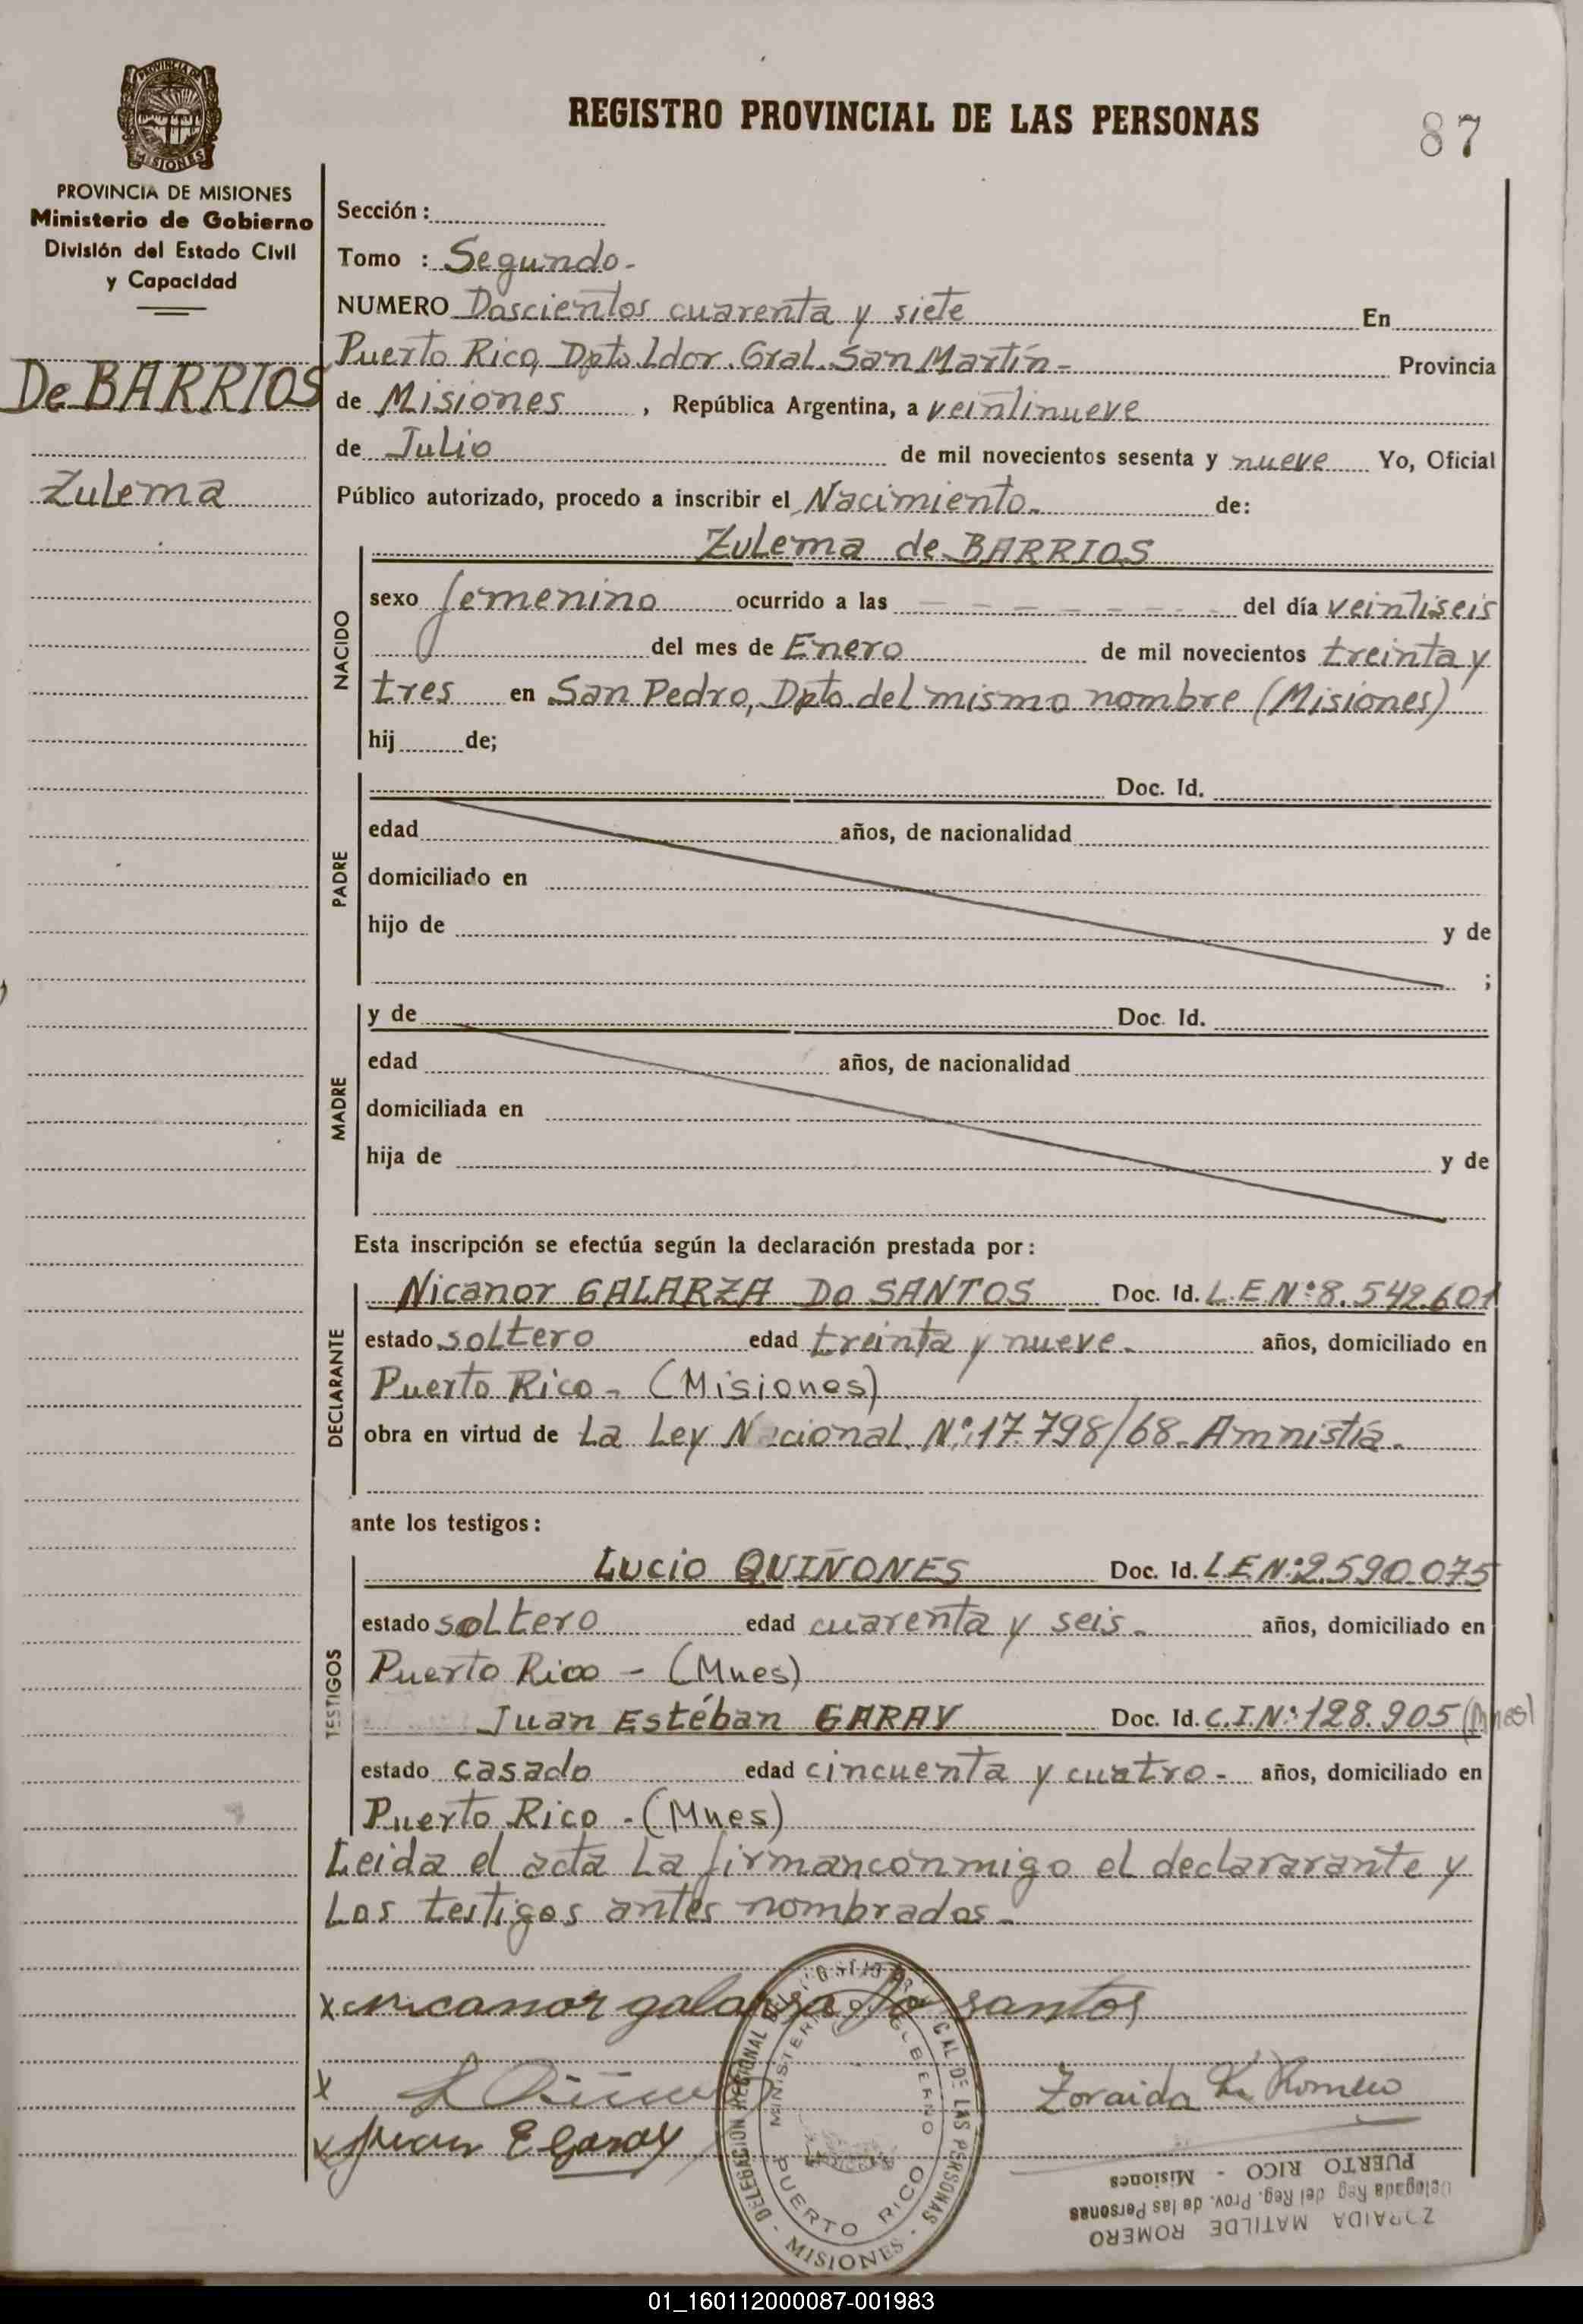 REGISTRO PROVINCIAL DE LAS PERSONAS
87
PROVINCIA DE MISIONES
Ministerio de Gobierno
División del Estado Civil
y Capacidad
De BARRIOS
Zulema
Sección:
Tomo : Segundo-
NUMERO Doscientos cuarenta y siete En
Puerto Rico, Dpto. Ldor. Gral. San Martín- Provincia
de Misiones, República Argentina, a veintinueve
de Julio de mil novecientos sesenta y nueve Yo, Oficial
Público autorizado, procedo a inscribir el Nacimiento- de:
NACIDO
Zulema de BARRIOS
sexo femenino ocurrido a las - - - - - - - del día veintiseis
del mes de Enero de mil novecientos treinta y
tres en San Pedro, Dpto. del mismo nombre (Misiones)
hij de;
PADRE
Doc. Id.
edad años, de nacionalidad
domiciliado en
hijo de y de
;
MADRE
y de Doc. Id.
edad años, de nacionalidad
domiciliada en
hija de y de
Esta inscripción se efectúa según la declaración prestada por:
DECLARANTE
Nicanor GALARZA Do SANTOS Doc. Id. L.E.Nº8.542.601
estado soltero edad treinta y nueve- años, domiciliado en
Puerto Rico- (Misiones)
obra en virtud de La Ley Nacional Nº:17.798/68-Amnistía-
ante los testigos:
TESTIGOS
Lucio QUIÑONES Doc. Id. L E Nº:2.590.075
estado soltero edad cuarenta y seis- años, domiciliado en
Puerto Rico - (Mnes)
Juan Estéban GARAY Doc. Id. C.I.Nº:128.905 (Mnes)
estado casado edad cincuenta y cuatro- años, domiciliado en
Puerto Rico -(Mnes)
Leida el acta La firman conmigo el declararante y
Los testigos antes nombrados-
x nicanor galarza Do santos
x
x Juan E Garay
Zoraida Romero
DELEGACION REGIONAL DEL REGISTRO PROVINCIAL DE LAS PERSONAS - MISIONES -
MINISTERIO DE GOBIERNO
PUERTO RICO
ZORAIDA MATILDE ROMERO
Delegada Reg del Reg. Prov. de las Personas
PUERTO RICO - Misiones
01_160112000087-001983